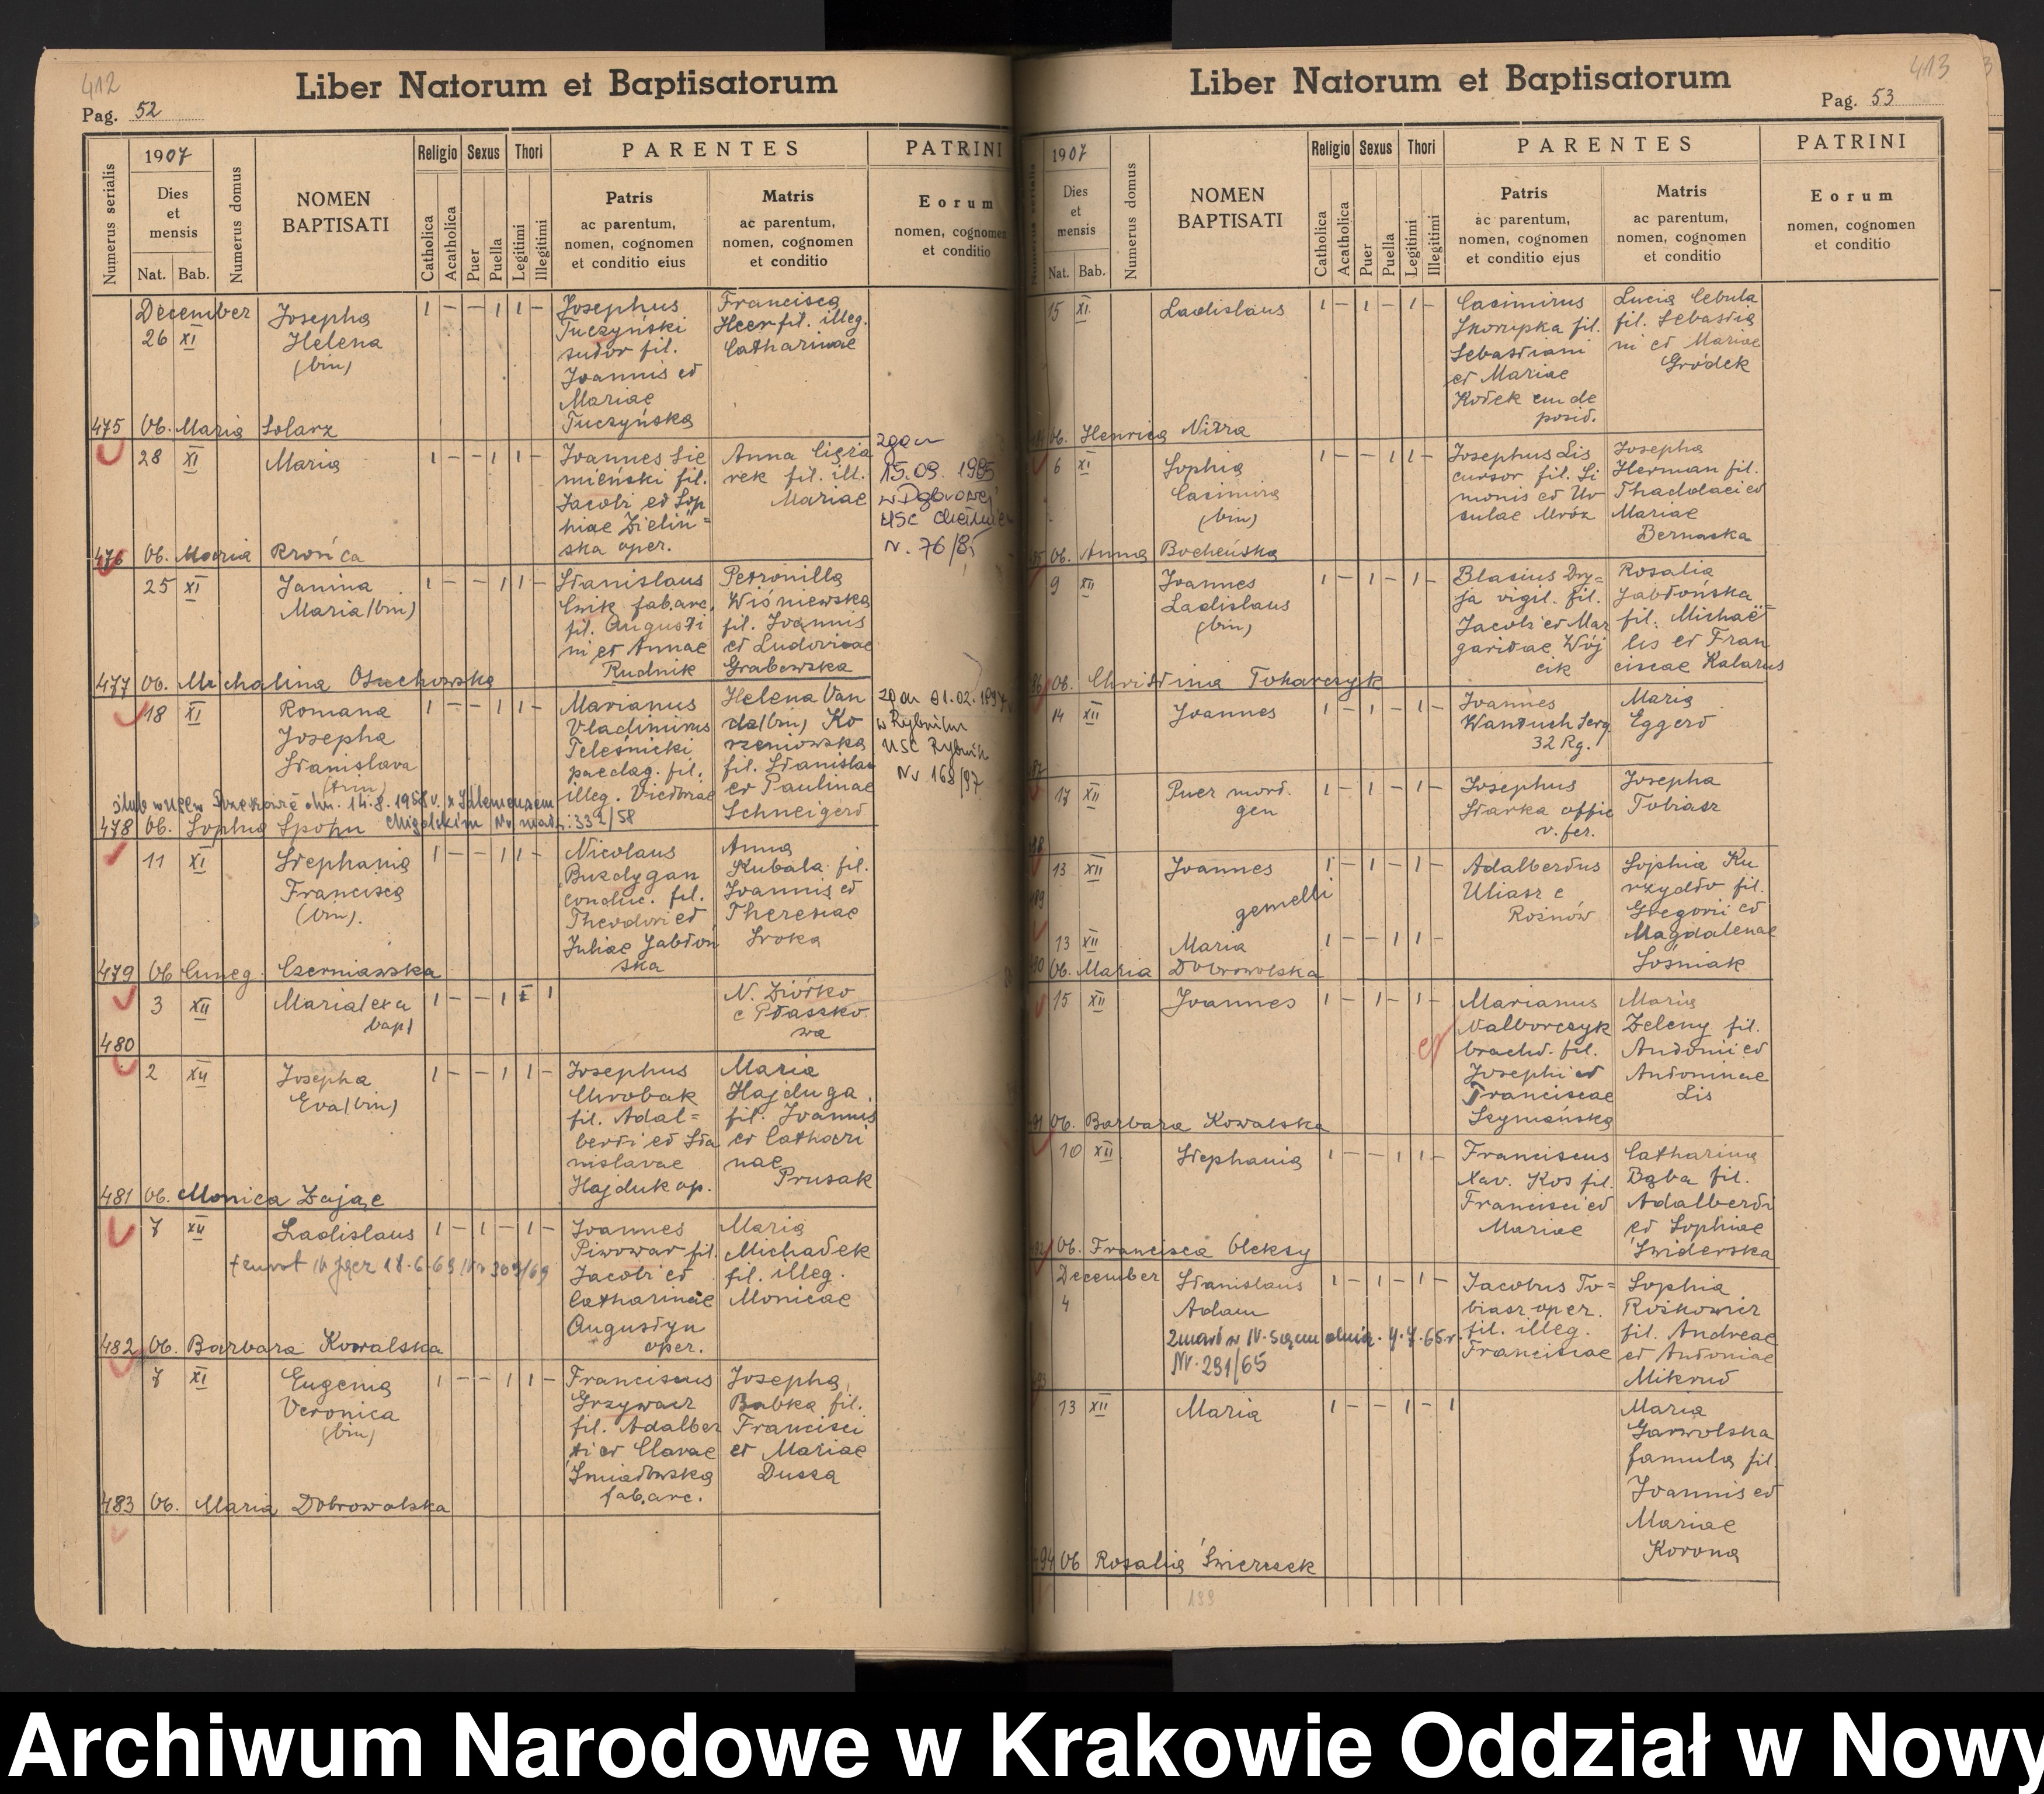 412
Liber Natorum et Baptisatorum
Pag. 52
Numerus serialis
1907
Dies
et
mensis
Nat. Bab.
Numerus domus
NOMEN
BAPTISATI
Religio Sexus Thori
Catholica
Acatholica
Puer
Puella
Legitimi
Illegitimi
PARENTES
Patris
ac parentum,
nomen, cognomen
et conditio eius
Matris
ac parentum,
nomen, cognomen
et conditio
PATRINI
Eorum
nomen, cognomen
et conditio
December
26 XI
Josepha
Helena
(bin)
1 – – 1 1 –
Josephus
Tuczynski
sutor fil.
Joannis et
Mariae
Tuczyńska
Francisca
Heer fil. illeg.
Catharinae
475 Ob. Maria Solarz
28 XI
Maria
1 – – 1 1 –
Joannes Sie
mieński fil.
Jacobi et Sop
hiae Zieliń=
ska oper.
Anna
rek fil. ill.
Mariae
zgon
15.09. 1985
USC
N. 76/85
476 Ob. Maria Krońca
25 XI
Janina
Maria (bin)
1 – – 1 1 –
Stanislaus
Cwik fab. arc.
fil. Augusti
ni et Annae
Rudnik
Petronilla
Wiśniewska
fil. Joannis
et Ludovicae
Grabowska
477 Ob. Michalina Osuchowska
18 XI
Romana
Josepha
Stanislava
(trin)
1 – – 1 1 –
Marianus
Vladimirus
Teleśnicki
paedag. fil.
illeg. Victoriae
Helena Van
da (bin) Ko
rzeniowska
fil. Stanislai
et Paulinae
Schneigert
zgon 01.02.1997
w Rybniku
USC Rybnik
Nr 168/97
ślub w dn. 14.8.1958 r. z Klemensem
478 Ob. Sophia Spohn Nr małż: 332/58
11 XI
Stephania
Francisca
(bin).
1 – – 1 1 –
Nicolaus
Buzdygan
conduc. fil.
Theodori et
Juliae Jabłoń
ska
Anna
Kubala fil.
Joannis et
Theresiae
Sroka
479 Ob Cuneg. Czerniawska
3 XII
Maria (ex a
bap)
1 – – 1 1
N. Ziółko
e Ptaszko
wa
480
2 XII
Josepha
Eva (bin)
1 – – 1 1 –
Josephus
Chrobak
fil. Adal=
berti et Sta
nislavae
Hajduk op.
Maria
Hajduga
fil. Joannis
et Cathari
nae
Prusak
481 Ob. Monica Zając
7 XII
Ladislaus
1 – 1 – 1 –
Joannes
Piwowar fil.
Jacobi et
Catharinae
Augustyn
oper.
Maria
Michałek
fil. illeg.
Monicae
18.6.69 Nr 309/69
482 Ob. Barbara Kowalska
7 XI
Eugenia
Veronica
(bin)
1 – – 1 1 –
Franciscus
Grzywacz
fil. Adalber
ti et Clarae
Śmiatowska
fab. arc.
Josepha
Babka fil.
Francisci
et Mariae
Dussa
483 Ob. Maria Dobrowolska
413
Liber Natorum et Baptisatorum
Pag. 53
Numerus serialis
1907
Dies
et
mensis
Nat. Bab.
Numerus domus
NOMEN
BAPTISATI
Religio Sexus Thori
Catholica
Acatholica
Puer
Puella
Legitimi
Illegitimi
PARENTES
Patris
ac parentum,
nomen, cognomen
et conditio ejus
Matris
ac parentum,
nomen, cognomen
et conditio
PATRINI
Eorum
nomen, cognomen
et conditio
15 XI
Ladislaus
1 – 1 – 1 –
Casimirus
Skorupka fil.
Sebastiani
et Mariae
Kotek
posid.
Lucia Cebula
fil. Sebastia
ni et Mariae
Gródek
484 Ob. Henrica Nitra
6 XI
Sophia
Casimira
(bin)
1 – – 1 1 –
Josephus Lis
cursor fil. Si
monis et Ur
sulae Mróz
Josepha
Herman fil.
Thaddaei et
Mariae
Bernaska
485 Ob. Anna Bocheńska
9 XII
Joannes
Ladislaus
(bin)
1 – 1 – 1 –
Blasius Dry=
ja vigil. fil.
Jacobi et Mar
garitae Wój
cik
Rosalia
Jabłońska
fil. Michaë=
lis et Fran
ciscae Kalarus
486 Ob. Christina Tokarczyk
14 XII
Joannes
1 – 1 – 1 –
Joannes
Wantuch Serg
32 Rg.
Maria
Eggert
487
17 XII
Puer mort.
gen
1 – 1 – 1 –
Josephus
Starka offic
v. fer.
Josepha
Tobiasz
488
13 XII
Joannes
1 – 1 – 1 –
gemelli
489
Adalbertus
Uliasz e
Rożnów
Sophia Ku
rzydło fil.
Gregorii et
Magdalenae
Sośniak
13 XII
Maria
1 – – 1 1 –
490 Ob. Maria Dobrowolska
15 XII
Joannes
1 – 1 – 1 –
Marianus
Nalborczyk
bracht. fil.
Josephi et
Franciscae
Szymańska
Maria
Zeleny fil.
Antonii et
Antoninae
Lis
491 Ob. Barbara Kowalska
10 XII
Stephania
1 – – 1 1 –
Franciscus
Xav. Kos fil.
Francisci et
Mariae
Catharina
Bąba fil.
Adalberti
et Sophiae
Świderska
492 Ob. Francisca Oleksy
December
4
Stanislaus
Adam
1 – 1 – 1 –
Jacobus To=
biasz oper.
fil. illeg.
Franciscae
Sophia
Rożkowicz
fil. Andreae
et Antoniae
Mikrut
zmarł w N. Sączu dnia 4.7.65 r.
Nr. 291/65
493
13 XII
Maria
1 – – 1 – 1
Maria
Garwolska
famula fil.
Joannis et
Mariae
Korona
494 Ob Rosalia Świerczek
199
Archiwum Narodowe w Krakowie Oddział w Nowy